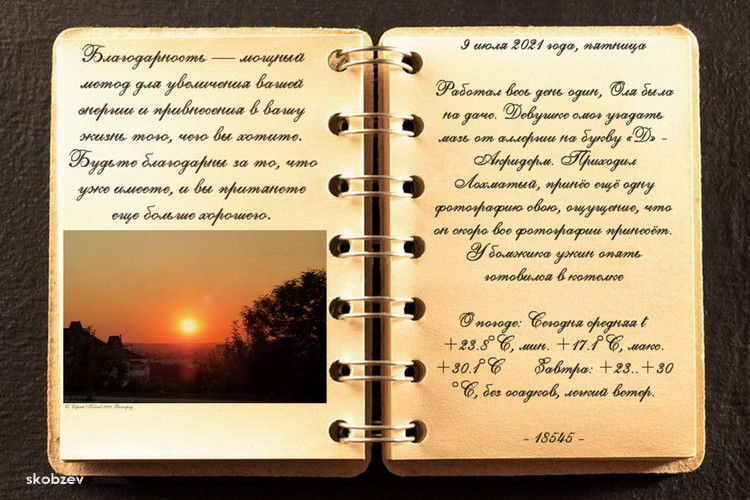 Благодарность — мощный
метод для увеличения вашей
энергии и привнесения в вашу
жизнь того, чего вы хотите.
Будьте благодарны за то, что
уже имеете, и вы притянете
еще больше хорошего.
9 июля 2021 года, пятница
Работал весь день один, Оля была
на даче. Девушке смог угадать
мазь от аллергии на букву «Д» -
Акридерм. Приходил
Лохматый, принёс ещё одну
фотографию свою, ощущение, что
он скоро все фотографии принесёт.
У бомжика ужин опять
готовился в котелке
О погоде: Сегодня средняя t
+23.8°C, мин. +17.1°C, макс.
+30.1°C Завтра: +23..+30
°C, без осадков, легкий ветер.
- 18545 -
skobzev